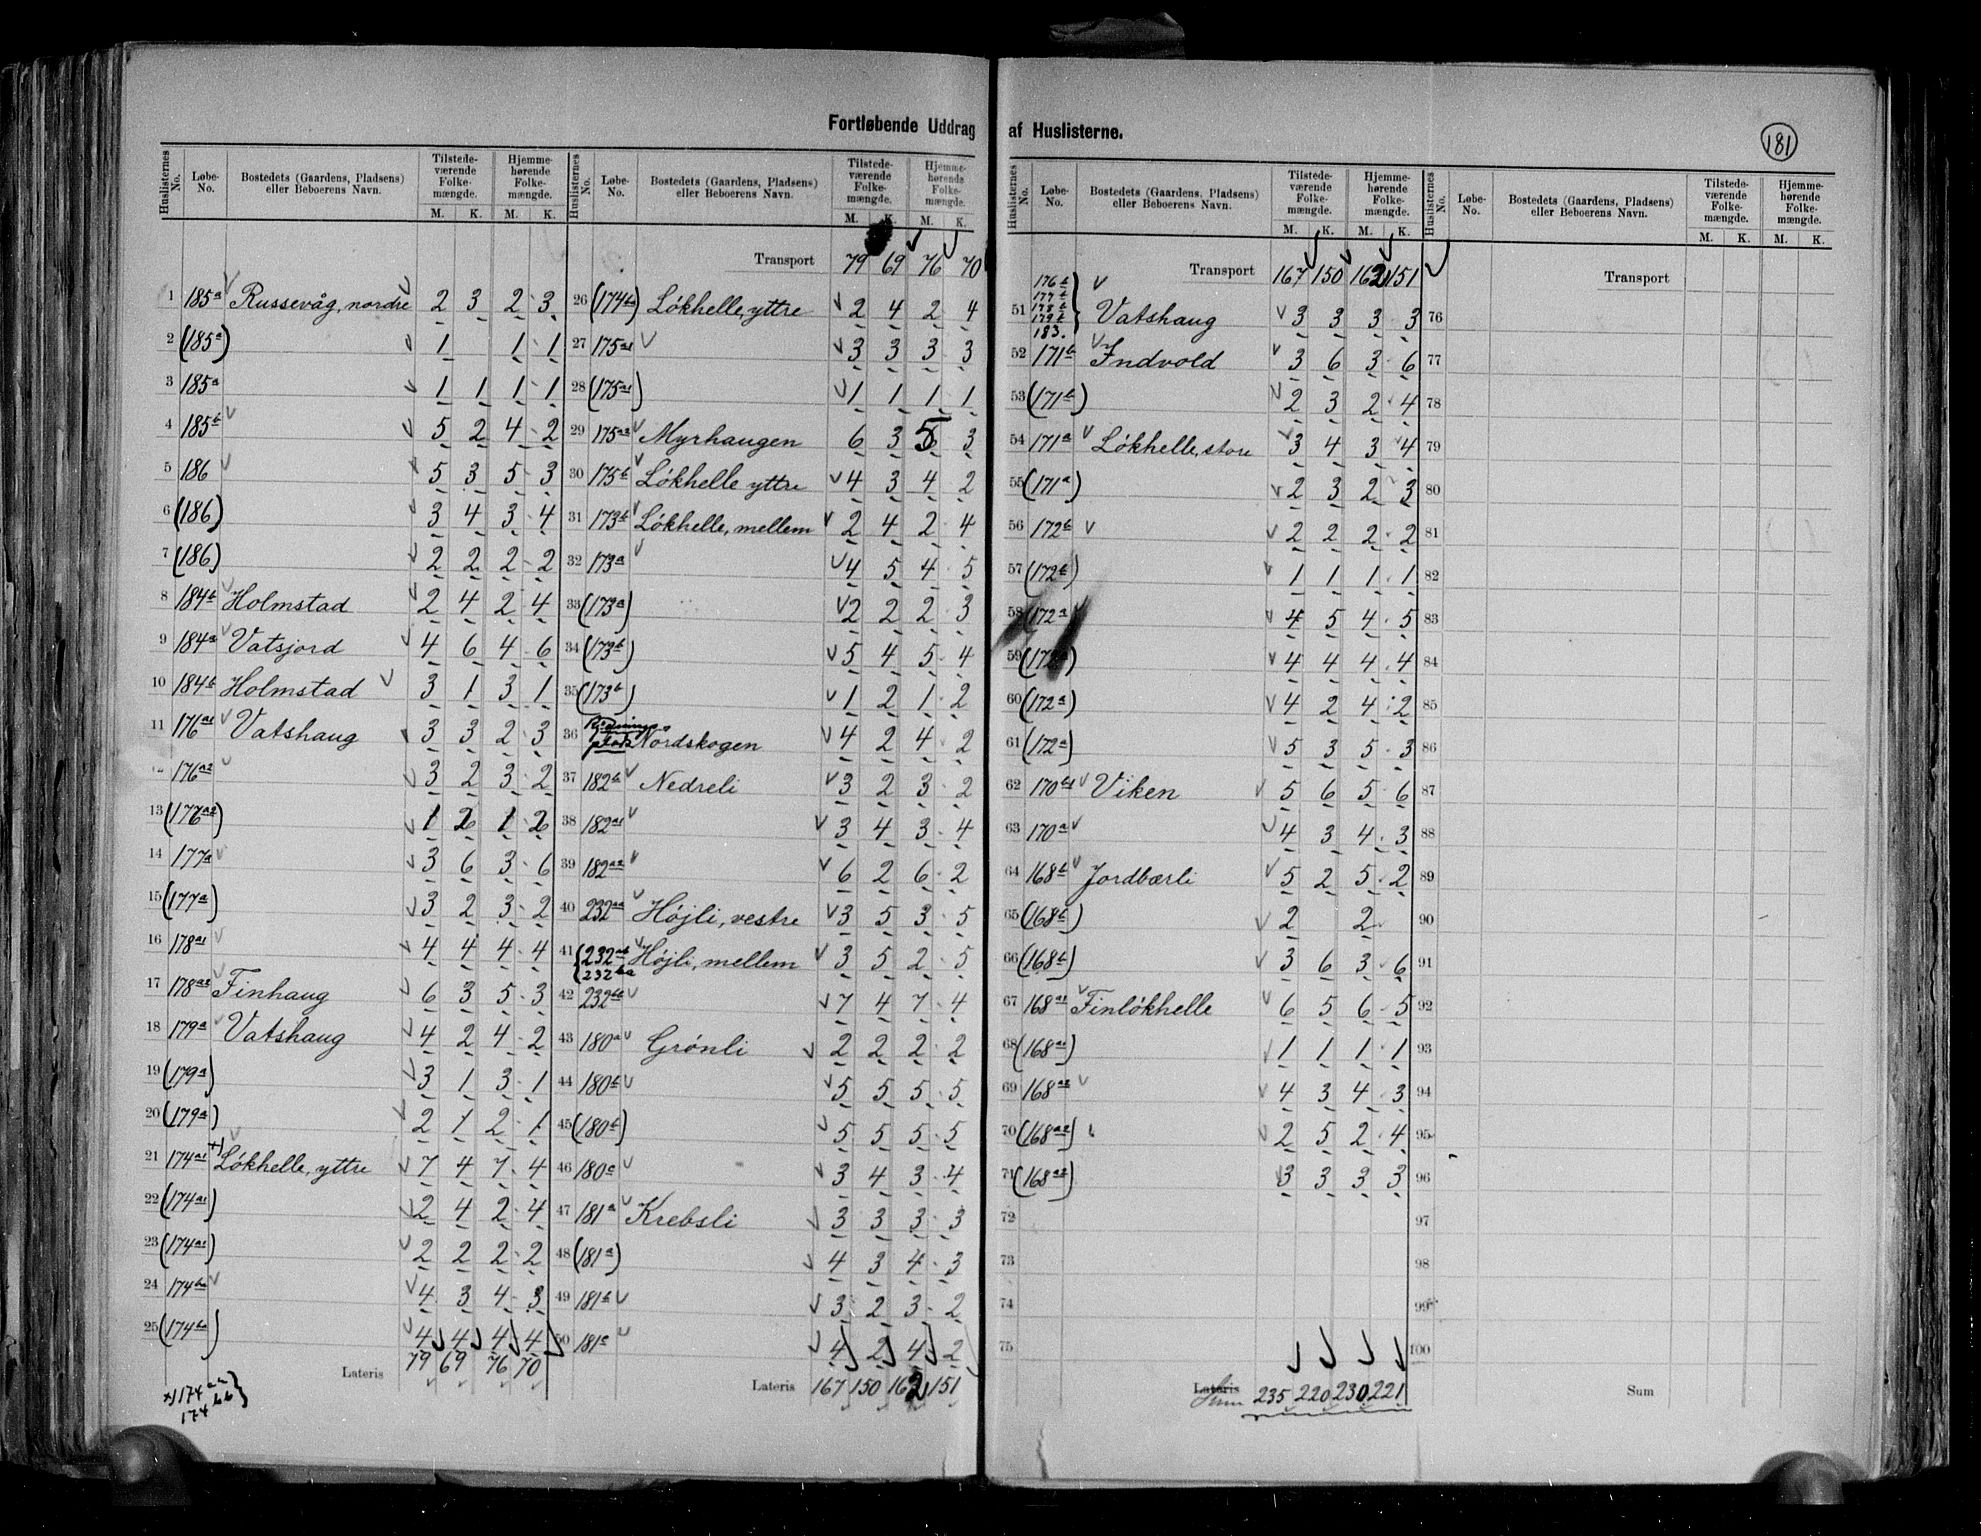 Fortløbende Uddrag af Huslisterne.
181
Huslisternes No. Løbe-No. Bostedets (Gaardens, Pladsens) eller Beboerens Navn. Tilstede-værende Folke-mængde. M. K. Hjemme-hørende Folke-mængde. M. K.
1 185a Russevåg, nordre 2 3 2 3
2 (185a) 1 1 1
3 185a 1 1 1 1
4 185b 5 2 4 2
5 186 5 3 5 3
6 (186) 3 4 3 4
7 (186) 2 2 2 2
8 184b Holmstad 2 4 2 4
9 184a Vatsjord 4 6 4 6
10 184b Holmstad 3 1 3 1
11 176a1 Vatshaug 3 3 2 3
176a2 3 2 3 2
13 (176a2) 1 2 1 2
14 177a 3 6 3 6
15 (177a) 3 2 3 2
16 178a1 4 4 4 4
17 178a2 Finhaug 6 3 5 3
18 179a Vatshaug 4 2 4 2
19 (179a) 3 1 3 1
20 (179a) 2 1 2 1
21 174a1 +) Løkhelle, yttre 7 4 7 4
22 (174a1) 2 4 2 4
23 (174a1) 2 2 2 2
24 174ba 4 3 4 3
25 (174ba) 4 4 4 4
Lateris 79 69 76 70
+) 174aa
174bb }
Huslisternes No. Løbe-No. Bostedets (Gaardens, Pladsens) eller Beboerens Navn. Tilstede-værende Folke-mængde. M. K. Hjemme-hørende Folke-mængde. M. K.
Transport 79 69 76 70
26 (174b) Løkhelle, yttre 2 4 2 4
27 175a1 3 3 3 3
28 (175a1) 1 1 1 1
29 175a2 Myrhaugen 6 3 5 3
30 175b Løkhelle yttre 4 3 4 2
31 173b Løkhelle, mellem 2 4 2 4
32 173a 4 5 4 5
33 (173a) 2 2 2 3
34 (173b) 5 4 5 4
35 (173b) 1 2 1 2
36 Rydningsplads Nordskogen 4 2 4 2
37 182b Nedreli 3 2 3 2
38 182a1 3 4 3 4
39 182a2 6 2 6 2
40 232aa Højli, vestre 3 5 3 5
41 {232ab Højli, mellem 3 5 2 5
232ba
42 232bb 7 4 7 4
43 180a Grønli 2 2 2 2
44 180b 5 5 5 5
45 (180b) 5 5 5 5
46 180c 3 4 3 4
47 181a Krebsli 3 3 3 3
48 (181a) 4 3 4 3
49 181b 3 2 3 2
50 181c 4 2 4 2
Lateris 167 150 162 151
Huslisternes No. Løbe-No. Bostedets (Gaardens, Pladsens) eller Beboerens Navn. Tilstede-værende Folke-mængde. M. K. Hjemme-hørende Folke-mængde. M. K.
Transport 167 150 162 151
176b
177b
51 178b } Vatshaug 3 3 3 3
179b
183.
52 171b Indvold 3 6 3 6
53 (171b) 2 3 2 4
54 171a Løkhelle, store 3 4 3 4
55 (171a) 2 3 2 3
56 172b 2 2 2 2
57 (172b) 1 1 1 1
58 (172a 4 5 4 5
59 (172a) 4 4 4 4
60 (172a) 4 2 4 2
61 (172a) 5 3 5 3
62 170b1 Viken 5 6 5 6
63 170a 4 3 4 3
64 168b Jordbærli 5 2 5 2
65 (168b) 2 2
66 (168b) 3 6 3 6
67 168a1 Finløkhelle 6 5 6 5
68 (168a1) 1 1 1 1
69 168a2 4 3 4 3
70 (168a2) 2 5 2 4
71 (168a2) 3 3 3 3
72
73
74
75
Lateris
Sum 235 220 230 221
Huslisternes No. Løbe-No. Bostedets (Gaardens, Pladsens) eller Beboerens Navn. Tilstede-værende Folke-mængde. M. K. Hjemme-hørende Folke-mængde. M. K.
Transport
76
77
78
79
80
81
82
83
84
85
86
87
88
89
90
91
92
93
94
95
96
97
98
99
100
Sum